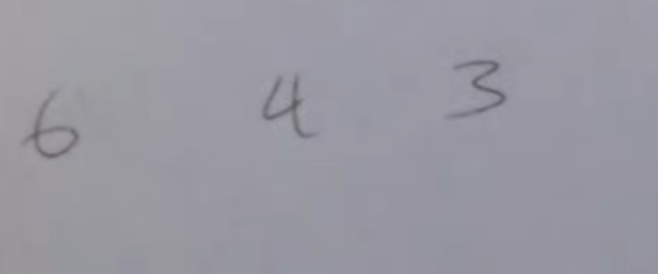 6 4 3